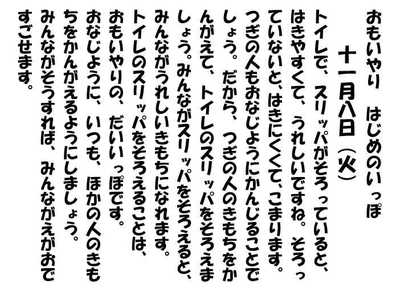 おもいやり　はじめのいっぽ
十一月八日（火）
トイレで、スリッパがそろっていると、
はきやすくて、うれしいですね。そろっ
ていないと、はきにくくて、こまります。
つぎの人もおなじようにかんじることで
しょう。だから、つぎの人のきもちをか
んがえて、トイレのスリッパをそろえま
しょう。みんながスリッパをそろえると、
みんながうれしいきもちになれます。
トイレのスリッパをそろえることは、
おもいやりの、だいいっぽです。
おなじように、いつも、ほかの人のきも
ちをかんがえるようにしましょう。
みんながそうすれば、みんながえがおで
すごせます。